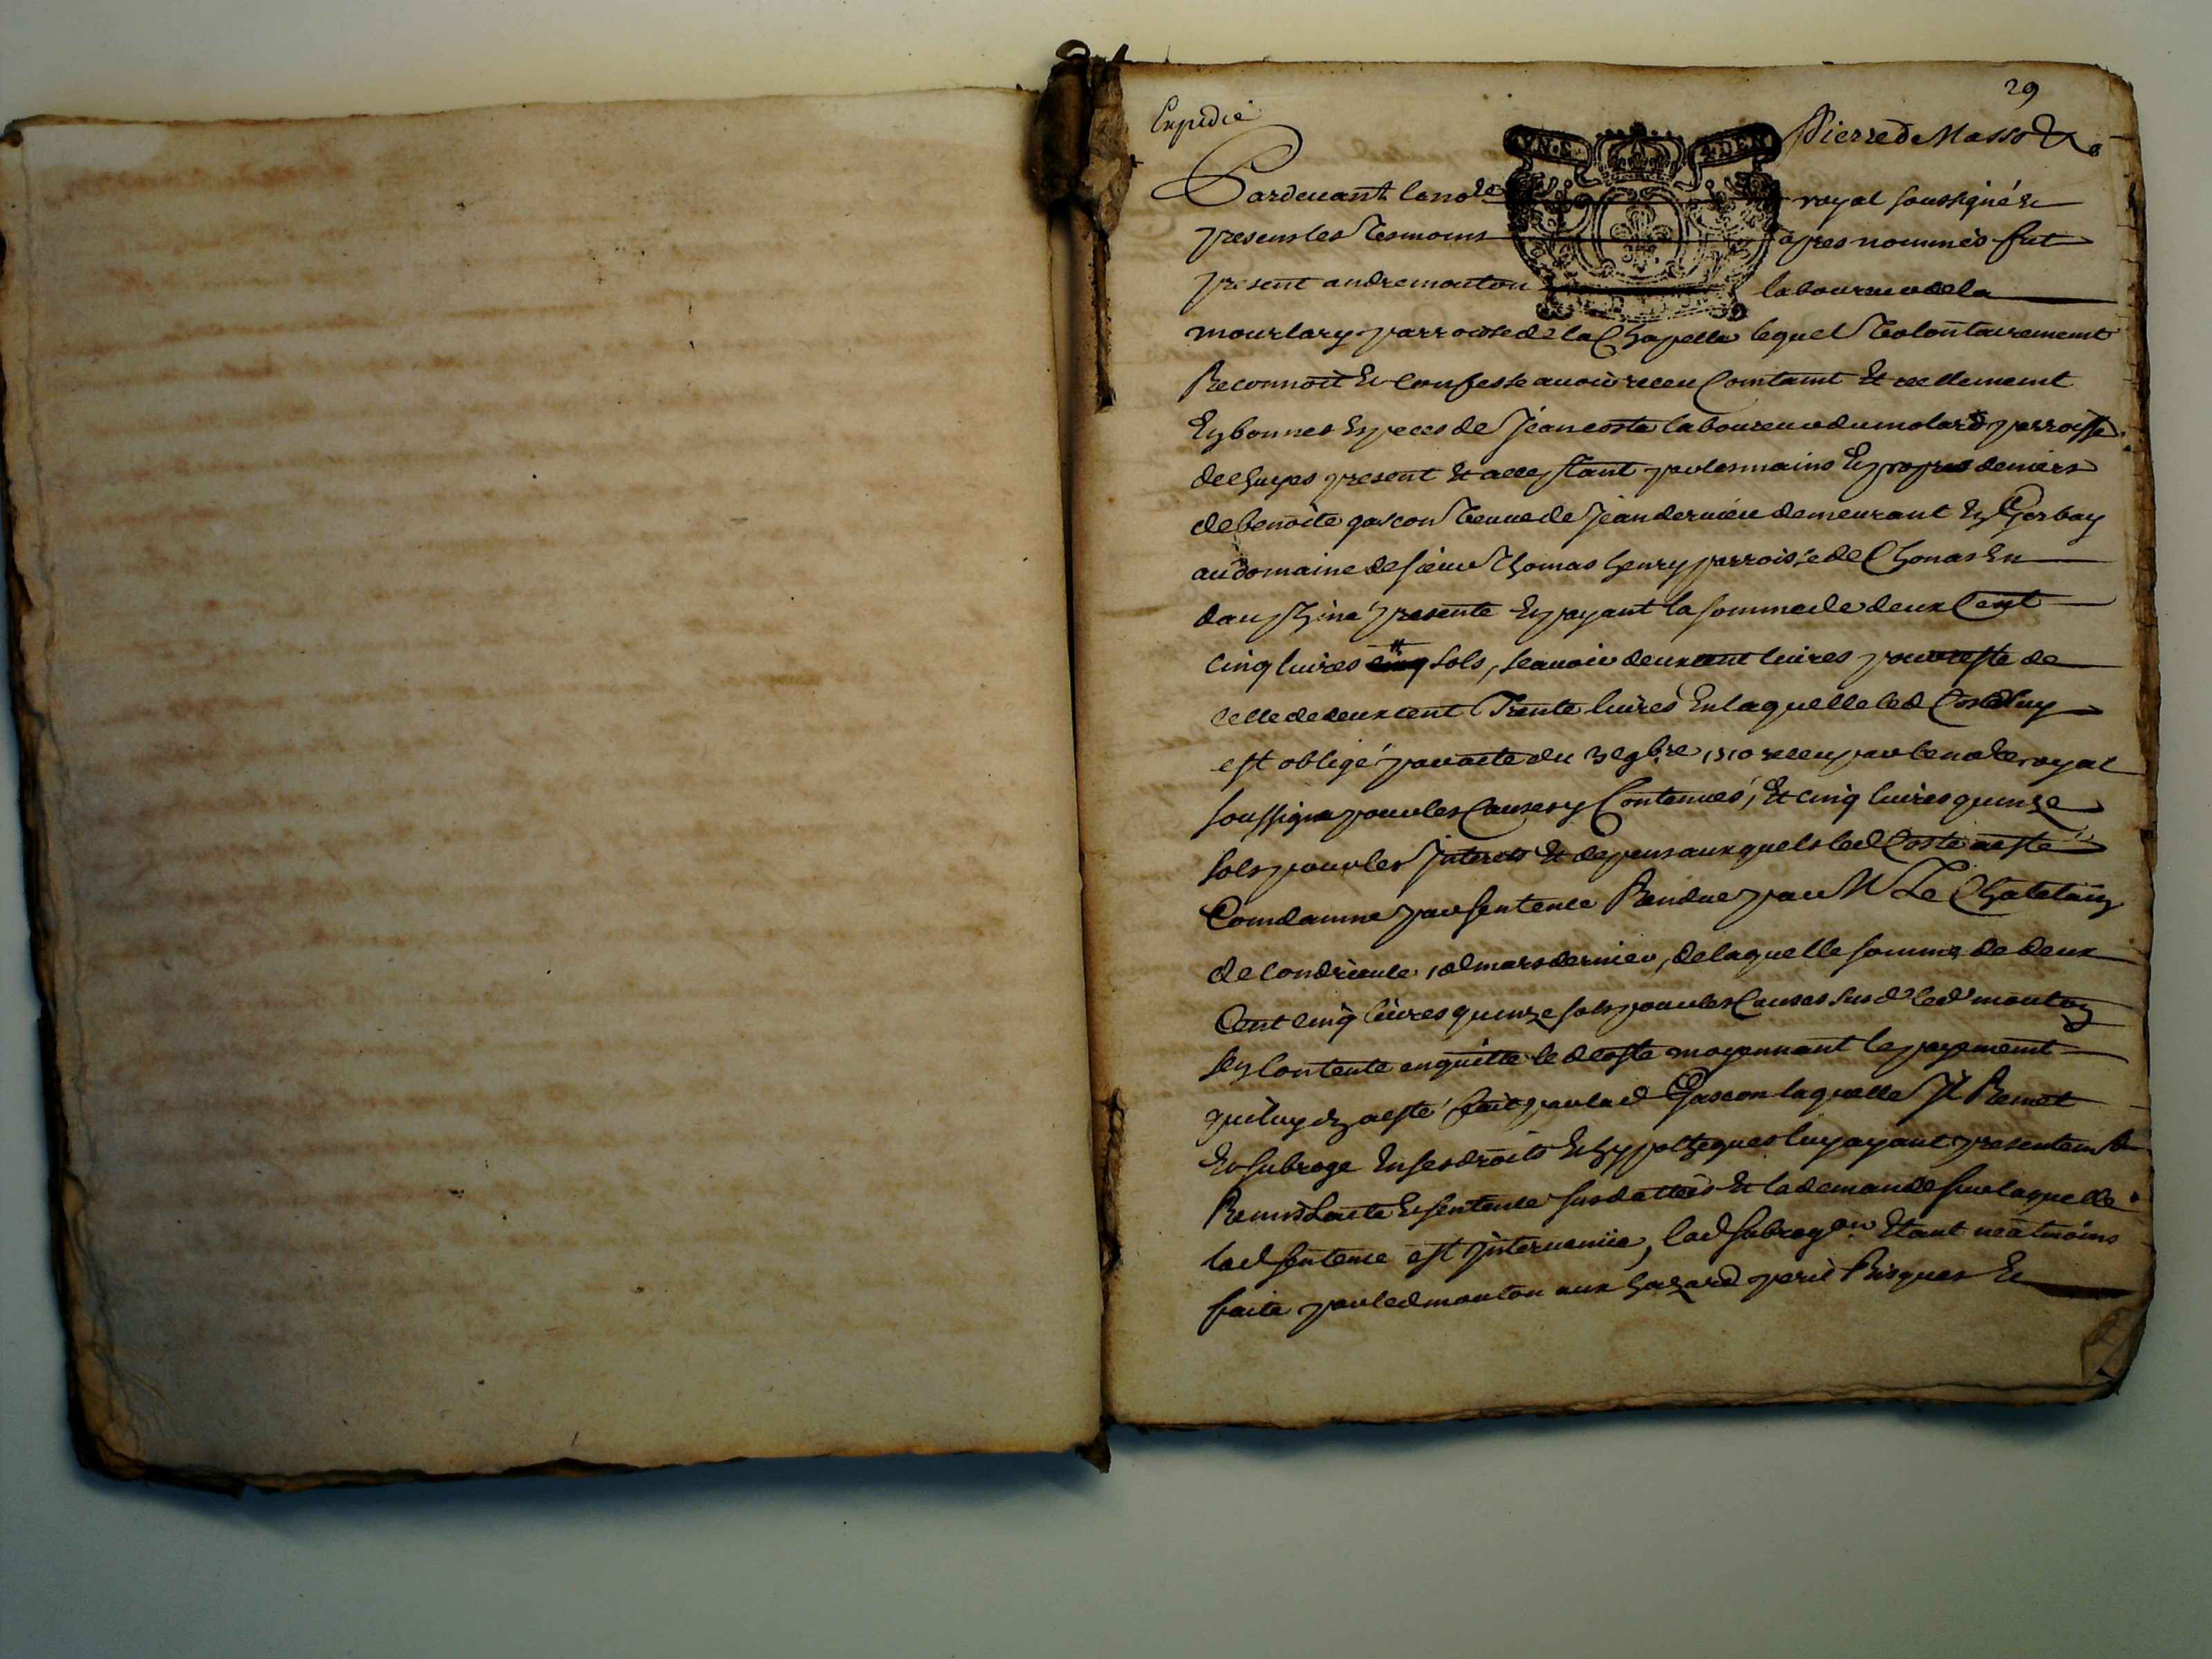 29
Expedié
VN.S. 4.DEN
Pierre de Masso
Pardeuant le no.re royal soussigné &
presens les tesmoins apres nommés fut
present andre mouton laboureur de la
mourlary parroisse de la Chapelle lequel volontairement
Reconnoit & Confesse auoir receu Comtamt & reellememt
En bonnes Especes de Jean coste laboureur du molard parroisse
de chuyes present & acceptant par les mains & propres deniers
de benoite gascon veuue de Jean dernieu demeurant En Gerbay
au domaine de sieur Thomas henry parroisse de Chonas En
dauphiné presente & payant la somme de deux Cent
cinq liures sols, scauoir deux cent liures pour reste de
celle de deux cent Trente liures En laquelle led Coste luy
est obligé par acte du 9bre receu par le no.re royal
soussigné pour les Causes y Contenues, Et cinq liures quinze
sols pour les Interets & depens auxquels led Coste a esté
Comdamne par sentence Rendue par Mr Le Chatelain
de condrieu le mars dernier, de laquelle somme de deux
Cent cinq liures quinze sols pour les Causes susd led mouton
sen Contente en quitte led coste moyennant le payememt
qui luy en a esté fait par lad Gascon laquelle Il Remet
& subroge En ses droits & hypotheques luy ayant presentemt
Remis Lacte & sentence susdattés & la demande sur laquelle
lad sentence est Interuenüe, lad subrogon Etant neatmoins
faite par led mouton aux hazard peril Risques &